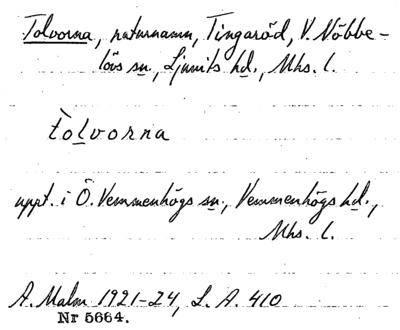 Tolvorna, naturnamn, Tingaröd, V. Nöbbe-
lövs sn, Ljunits hd., Mhs. l.
tòlvorna
uppt. i Ö. Vemmenhögs sn, Vemmenhögs hd.,
Mhs. l.
A. Malm 1921-24, L. A. 410
Nr 5664.